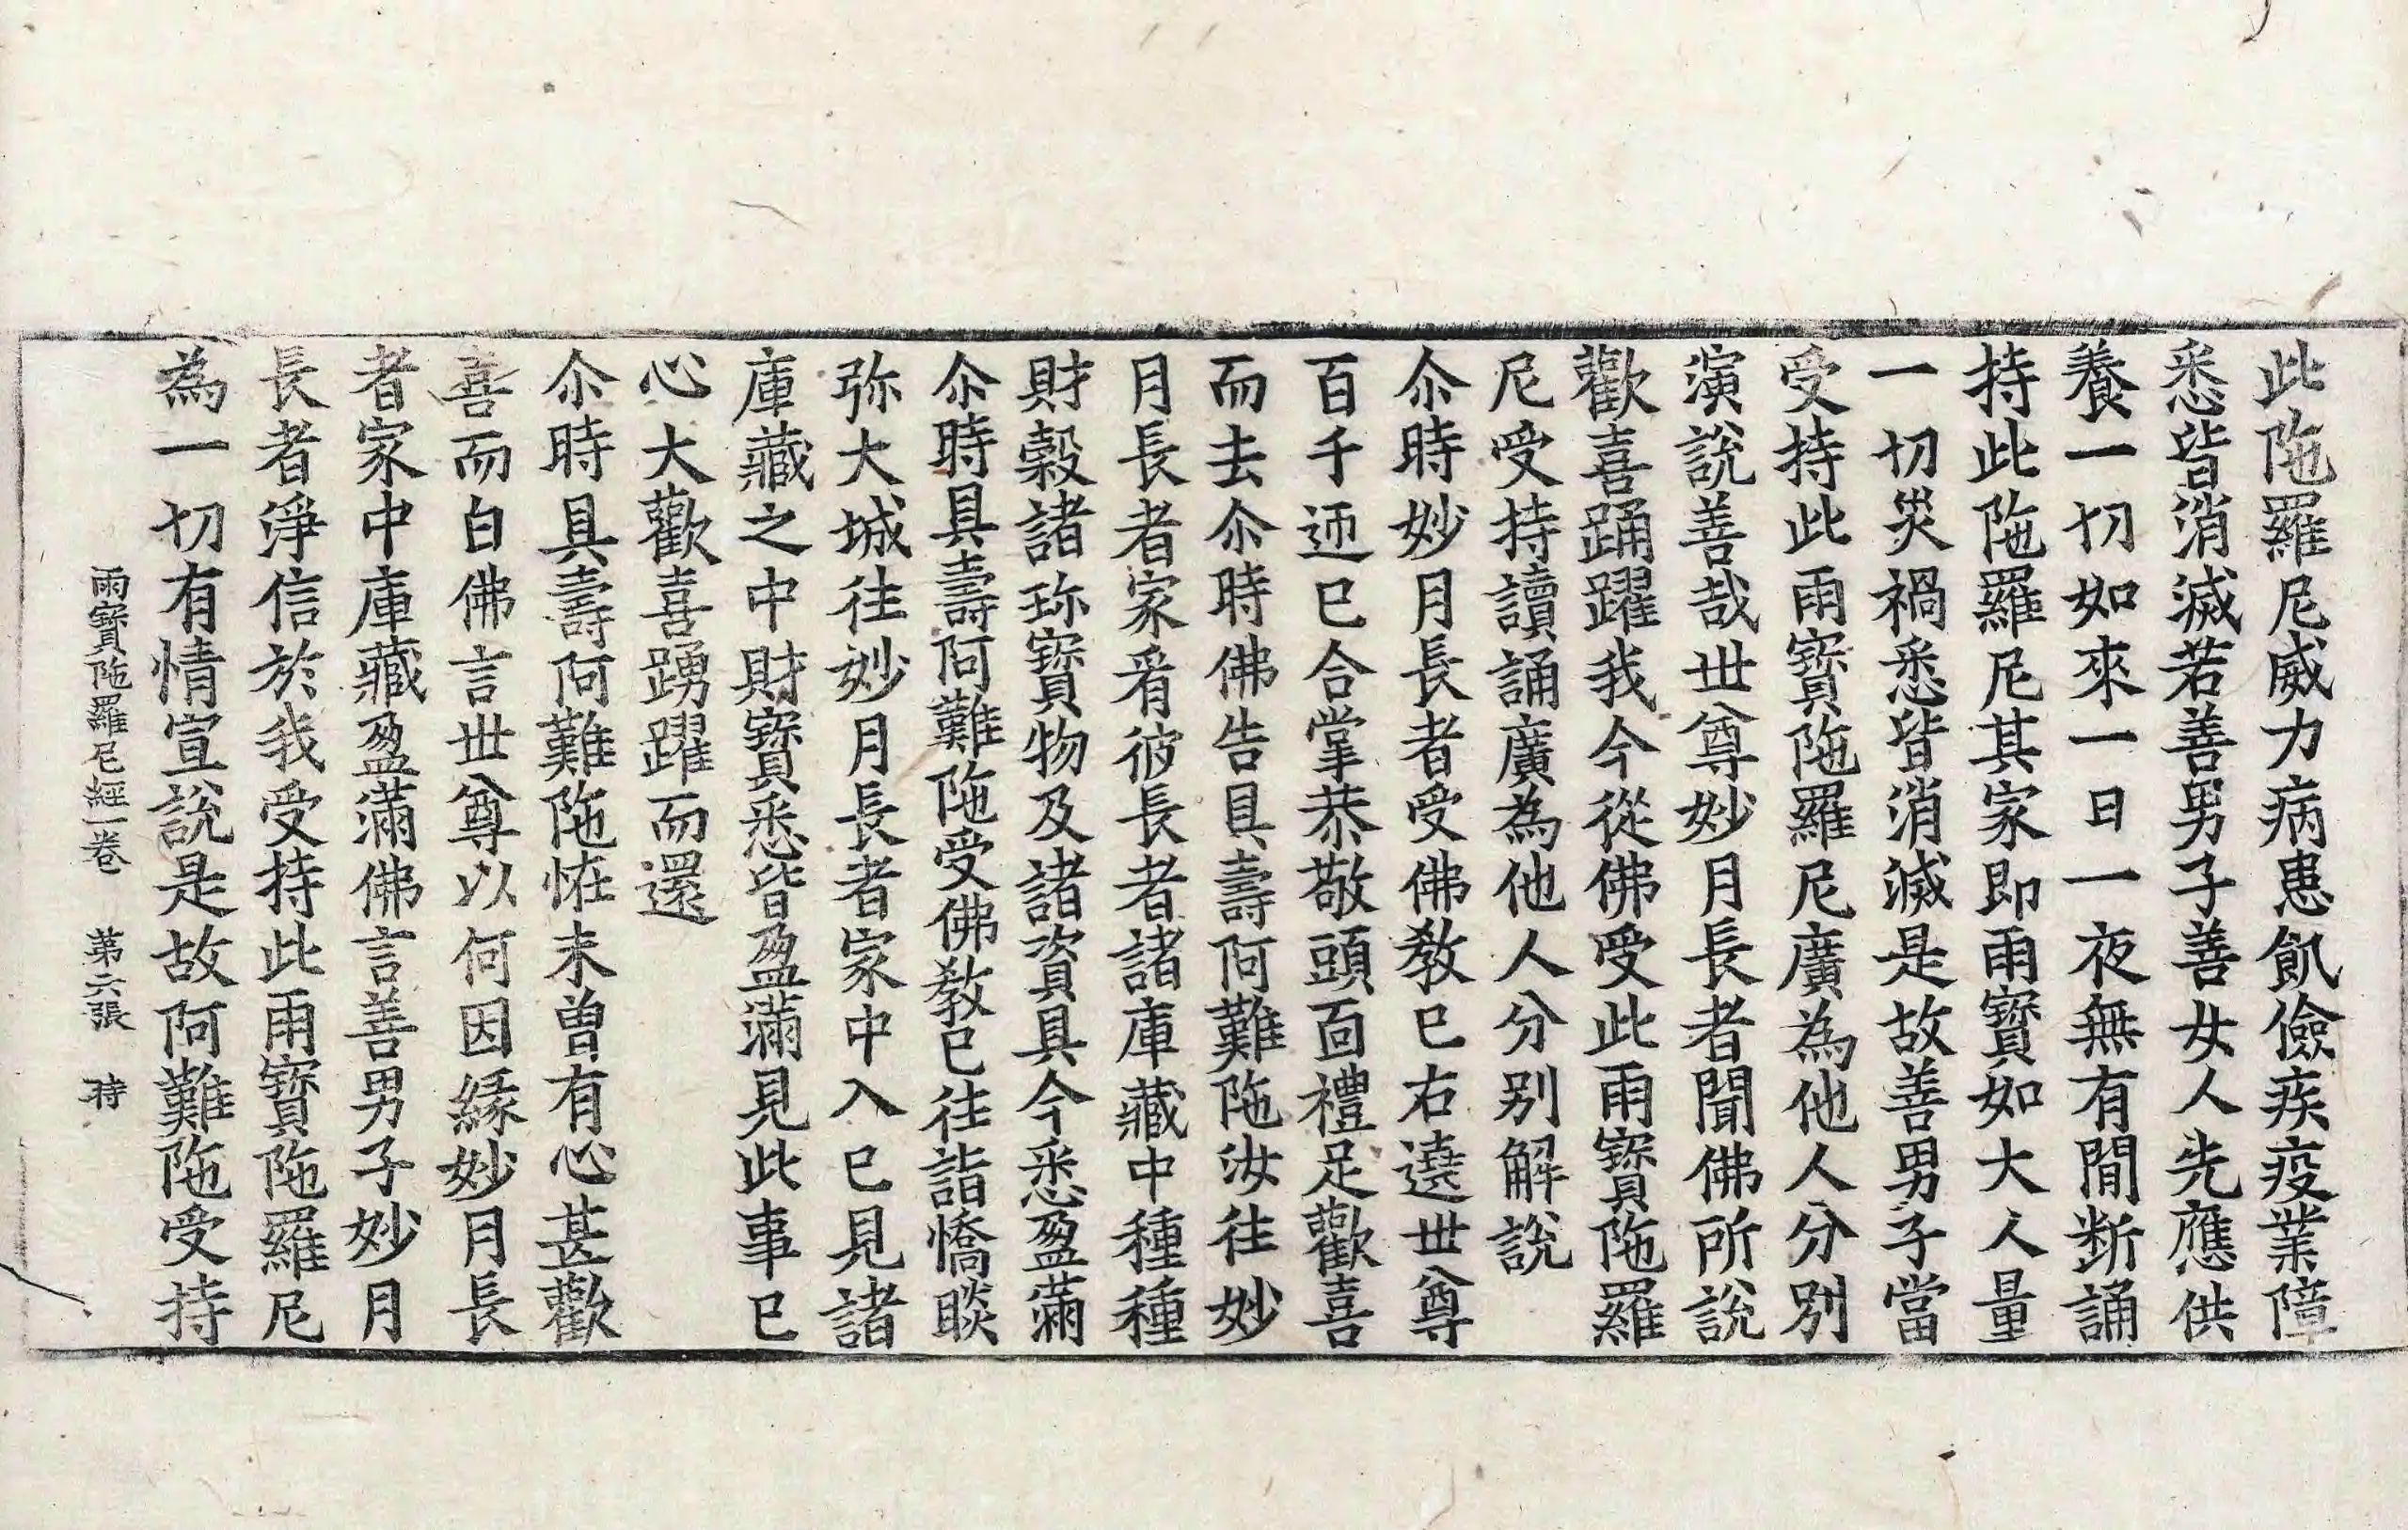 此陁羅尼威力病患飢儉疾疫業障
悉皆消滅若善男子善女人先應供
養一切如來一日一夜無有間斷誦
持此陁羅尼其家即雨寶如大人量
一切災禍悉皆消滅是故善男子當
受持此雨寶陁羅尼廣為他人分別
演說善哉世尊妙月長者聞佛所說
歡喜踊躍我今從佛受此雨寶陁羅
尼受持讀誦廣為他人分別解說
尒時妙月長者受佛敎已右遶世尊
百千迊已合掌恭敬頭面禮足歡喜
而去尒時佛告具壽阿難陁汝往妙
月長者家看彼長者諸庫藏中種種
財穀諸珎寶物及諸資具今悉盈滿
尒時具壽阿難陁受佛敎已往詣憍睒
弥大城往妙月長者家中入已見諸
庫藏之中財寶悉皆盈滿見此事已
心大歡喜踴躍而還
尒時具壽阿難陁恠未曾有心甚歡
喜而白佛言世尊以何因緣妙月長
者家中庫藏盈滿佛言善男子妙月
長者淨信於我受持此雨寶陁羅尼
為一切有情宣說是故阿難陁受持
雨寶陁羅尼經一卷 第六張 時